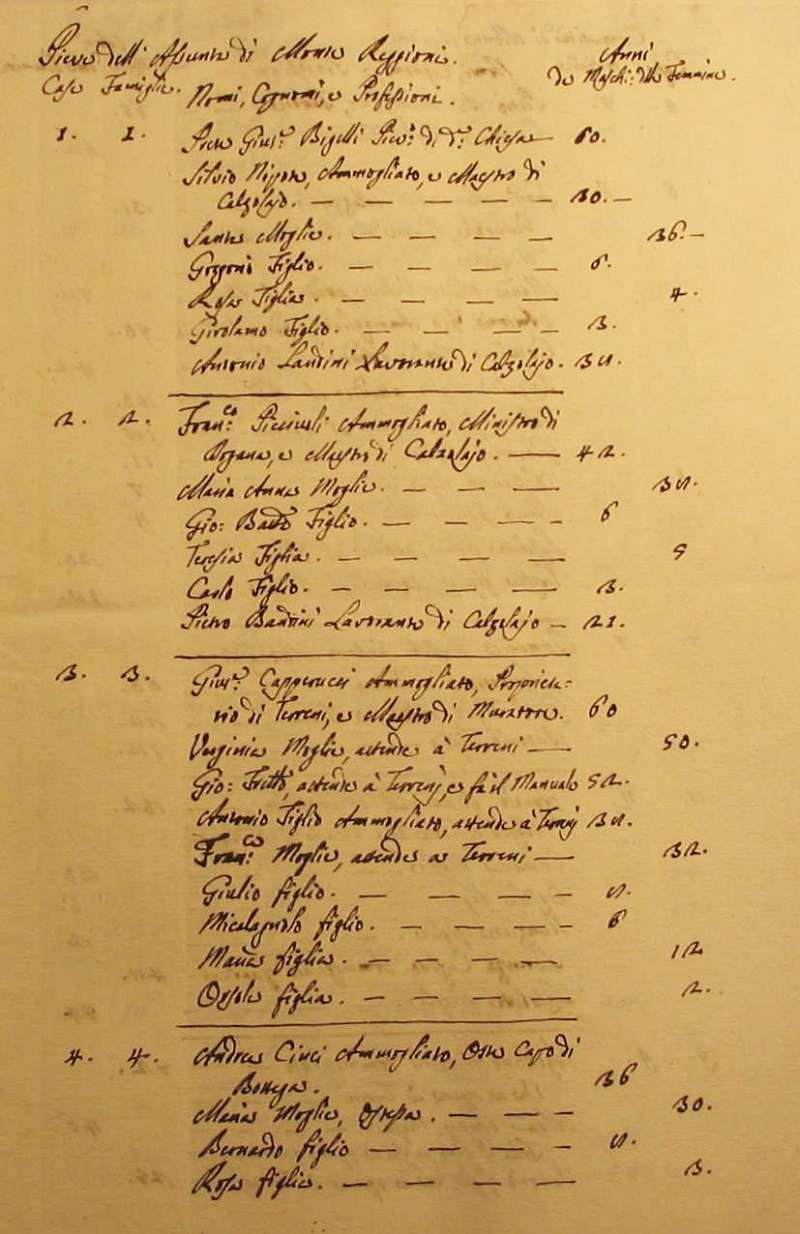 Pieve dell' Assunta di Monte Reggioni.
Anni
Case Famiglie. Nomi, Cognomi, e Professioni. de Maschi: delle Femmine.
1. 1. Prete Gius.e Bigelli Piev.o di d.a Chiesa — 60.
Silvio Nissote, Ammogliato, e Maestro di
Calzolajo. — — — — — 30. —
Santa Moglie. — — — — 36. —
Figlio. — — — — 6.
Rosa Figlia. — — — — 4.
Girolamo Figlio. — — — — 3.
Antonio Landini Lavorante di Calzolajo.
2. 2. Fran.co Picciuoli Ammogliato, Ministro di
Dogana, e Maestro di Calzolajo. — 42.
Maria Anna Moglie. — — —
Gio: Batta Figlio. — — — — 6
Teresia Figlia. — — — — 9
Carlo Figlio. — — — — 3.
Pietro Bandini Lavorante di Calzolajo — 21.
3. 3. Gius.e Capperucci Ammogliato, Proprieta=
rio di Terreni, e Maestro di Muratore. 60
Verginia Moglie, attende a' Terreni — 50.
Gio: Frello, attende à Terreni, e fà il Manuale 52.
Antonio Figlio Ammogliato, attende à Terreni
Fran.ca Moglie, attende a Terreni — 32.
Giulio figlio. — — — —
Micalagnolo figlio. — — — — 6
figlia. — — — — 12
Orsola figlia. — — — — 2.
4. 4. Andrea Cinci Ammogliato, Oste Capo di
Bottega. 36
Maria Moglie, Ostessa. — — — 30.
Bernardo figlio — — — —
Rosa figlia. — — — — 3.